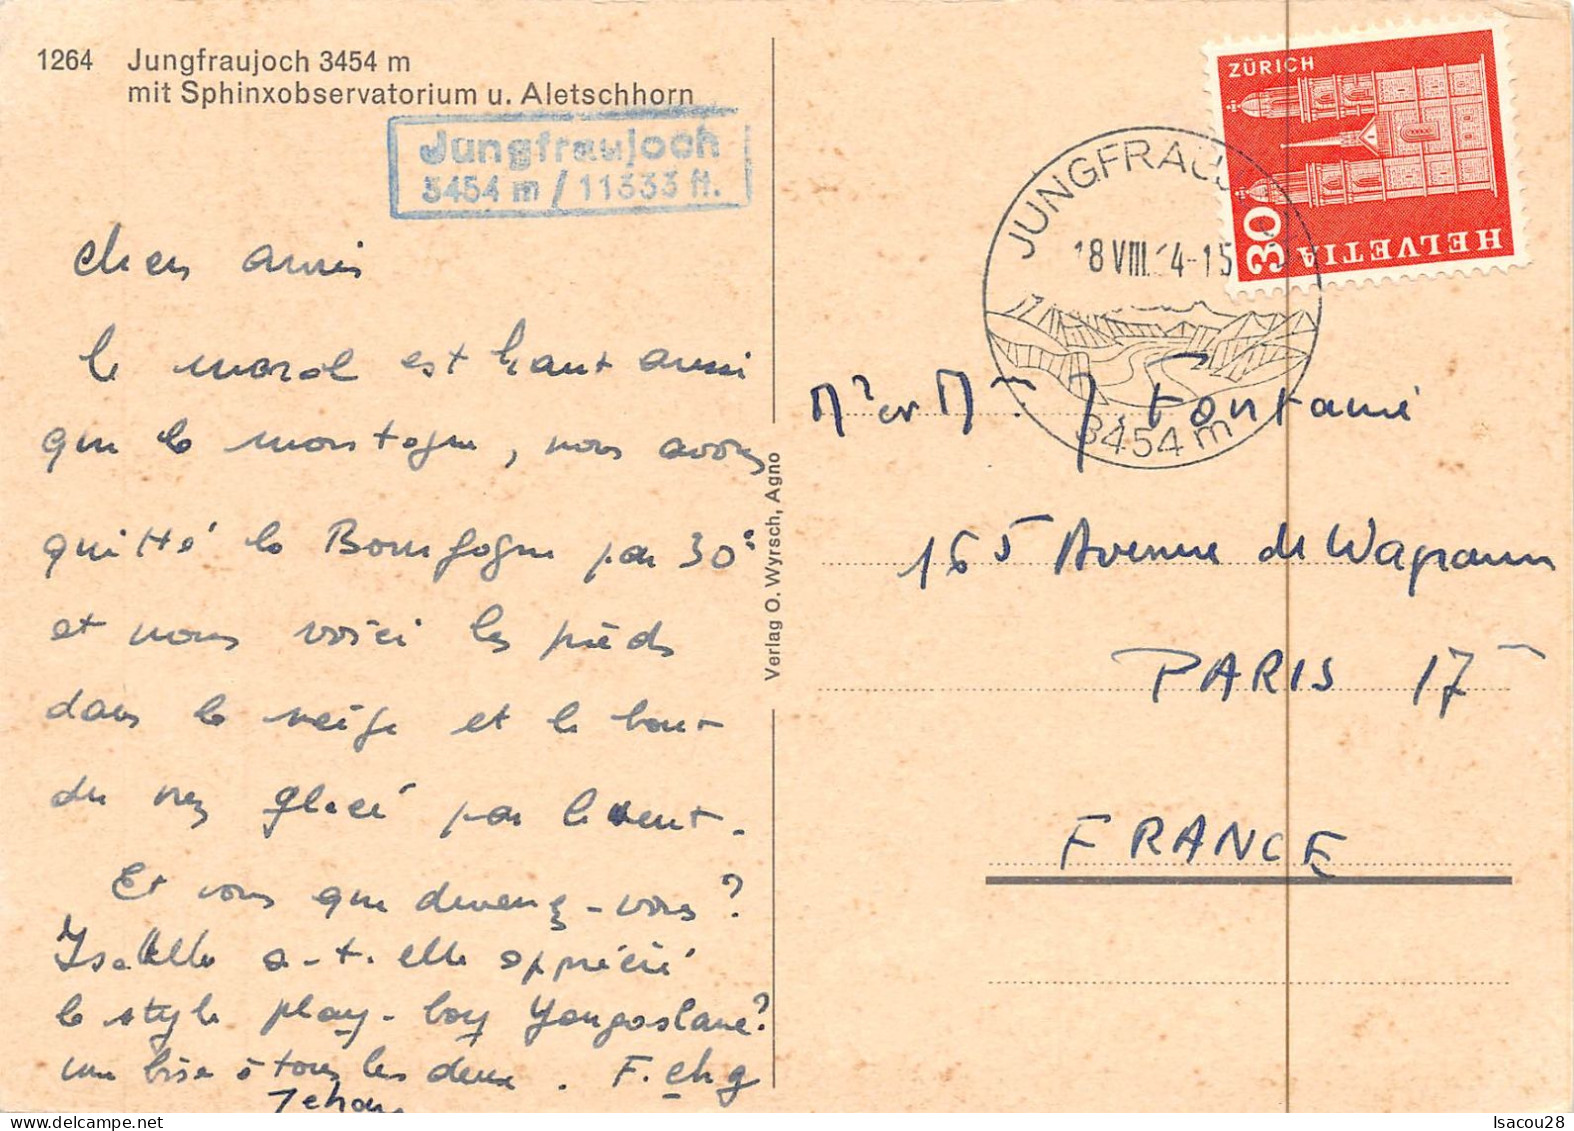 1264 Jungfraujoch 3454 m
mit Sphinxobservatorium u. Aletschhorn
Jungfraujoch
3454 m / 11333 ft.
chers amis
le moral est haut aussi
que la montagne, nous avons
quitté la Bourgogne par 30°
et nous voici les pieds
dans la neige et le bout
du nez glacé par le vent.
Et vous que devenez-vous?
Isabelle a-t-elle apprécié
le style play-boy Yougoslave?
une bise à tous les deux. F.
Verlag O. Wyrsch, Agno
ZÜRICH
30
HELVETIA
JUNGFRAUJ
18 VIII. 14-15
3454 m
Mr et Mme J. Fontaine
165 Avenue de Wagram
PARIS 17
FRANCE
Isacou28